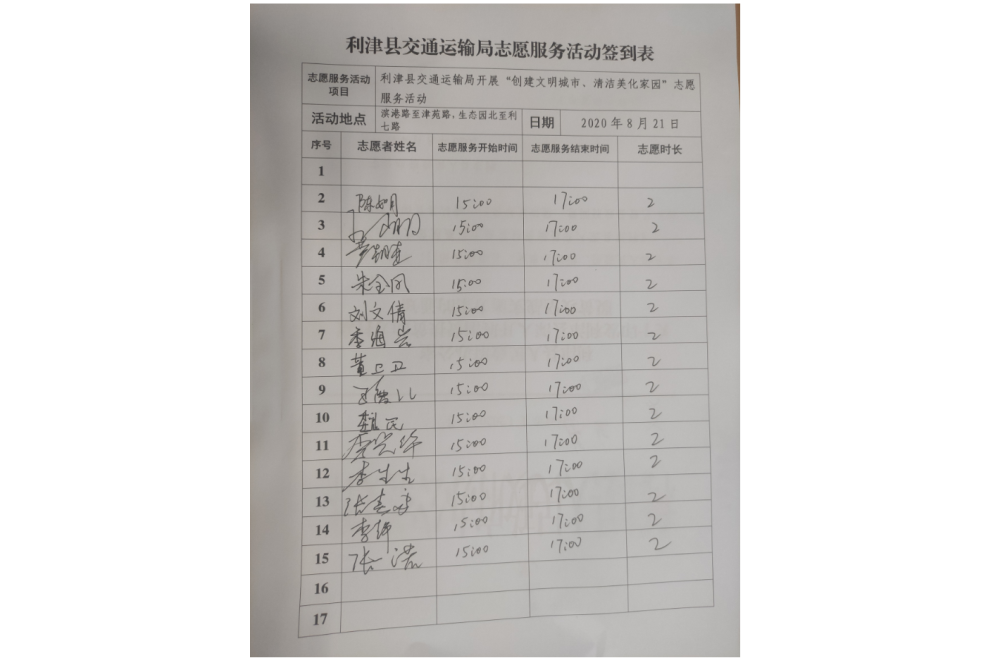 利津县交通运输局志愿服务活动签到表
志愿服务活动项目 利津县交通运输局开展“创建文明城市、清洁美化家园”志愿服务活动
活动地点 滨港路至津苑路,生态园北至利七路 日期 2020年8月21日
序号 志愿者姓名 志愿服务开始时间 志愿服务结束时间 志愿时长
1
2 陈如月 15:00 17:00 2
3 15:00 17:00 2
4 15:00 17:00 2
5 朱全凤 15:00 17:00 2
6 刘文倩 15:00 17:00 2
7 李海岩 15:00 17:00 2
8 董上卫 15:00 17:00 2
9 15:00 17:00 2
10 15:00 17:00 2
11 李光华 15:00 17:00 2
12 李生生 15:00 17:00 2
13 15:00 17:00 2
14 15:00 17:00 2
15 张浩 15:00 17:00 2
16
17